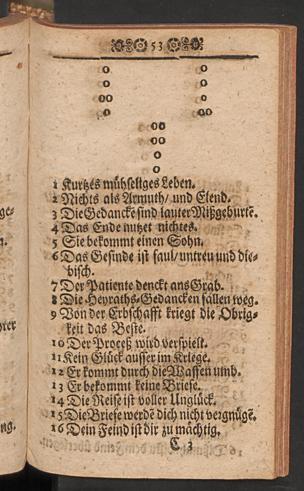 53
o o
o o
oo o
o oo
oo
oo
o
o
1 Kurtzes mühseliges Leben.
2 Nichts als Armuth/ und Elend.
3 Die Gedancke sind lauter Mißgeburtẽ.
4 Das Ende nutzet nichtes.
5 Sie bekommt einen Sohn.
6 Das Gesinde ist faul/ untreu und die-
bisch.
7 Der Patiente denckt ans Grab.
8 Die Heyraths-Gedancken fallen weg.
9 Von der Erbschafft kriegt die Obrig-
keit das Beste.
10 Der Proceß wird verspielt.
11 Kein Glück ausser im Kriege.
12 Er kommt durch die Waffen umb.
13 Er bekommt keine Briefe.
14 Die Reise ist voller Unglück.
15 Die Briefe werdẽ dich nicht vergnügẽ.
16 Dein Feind ist dir zu mächtig.
C 3